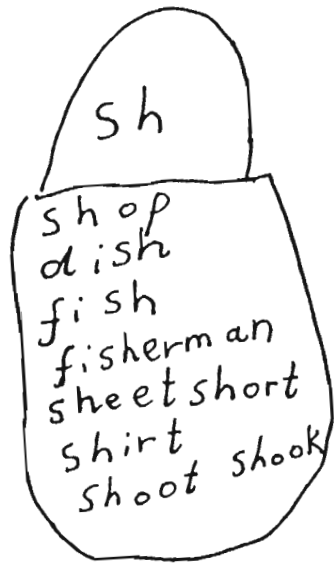 sh
shop
dish
fish
fisherman
sheet short
shirt
shoot shook